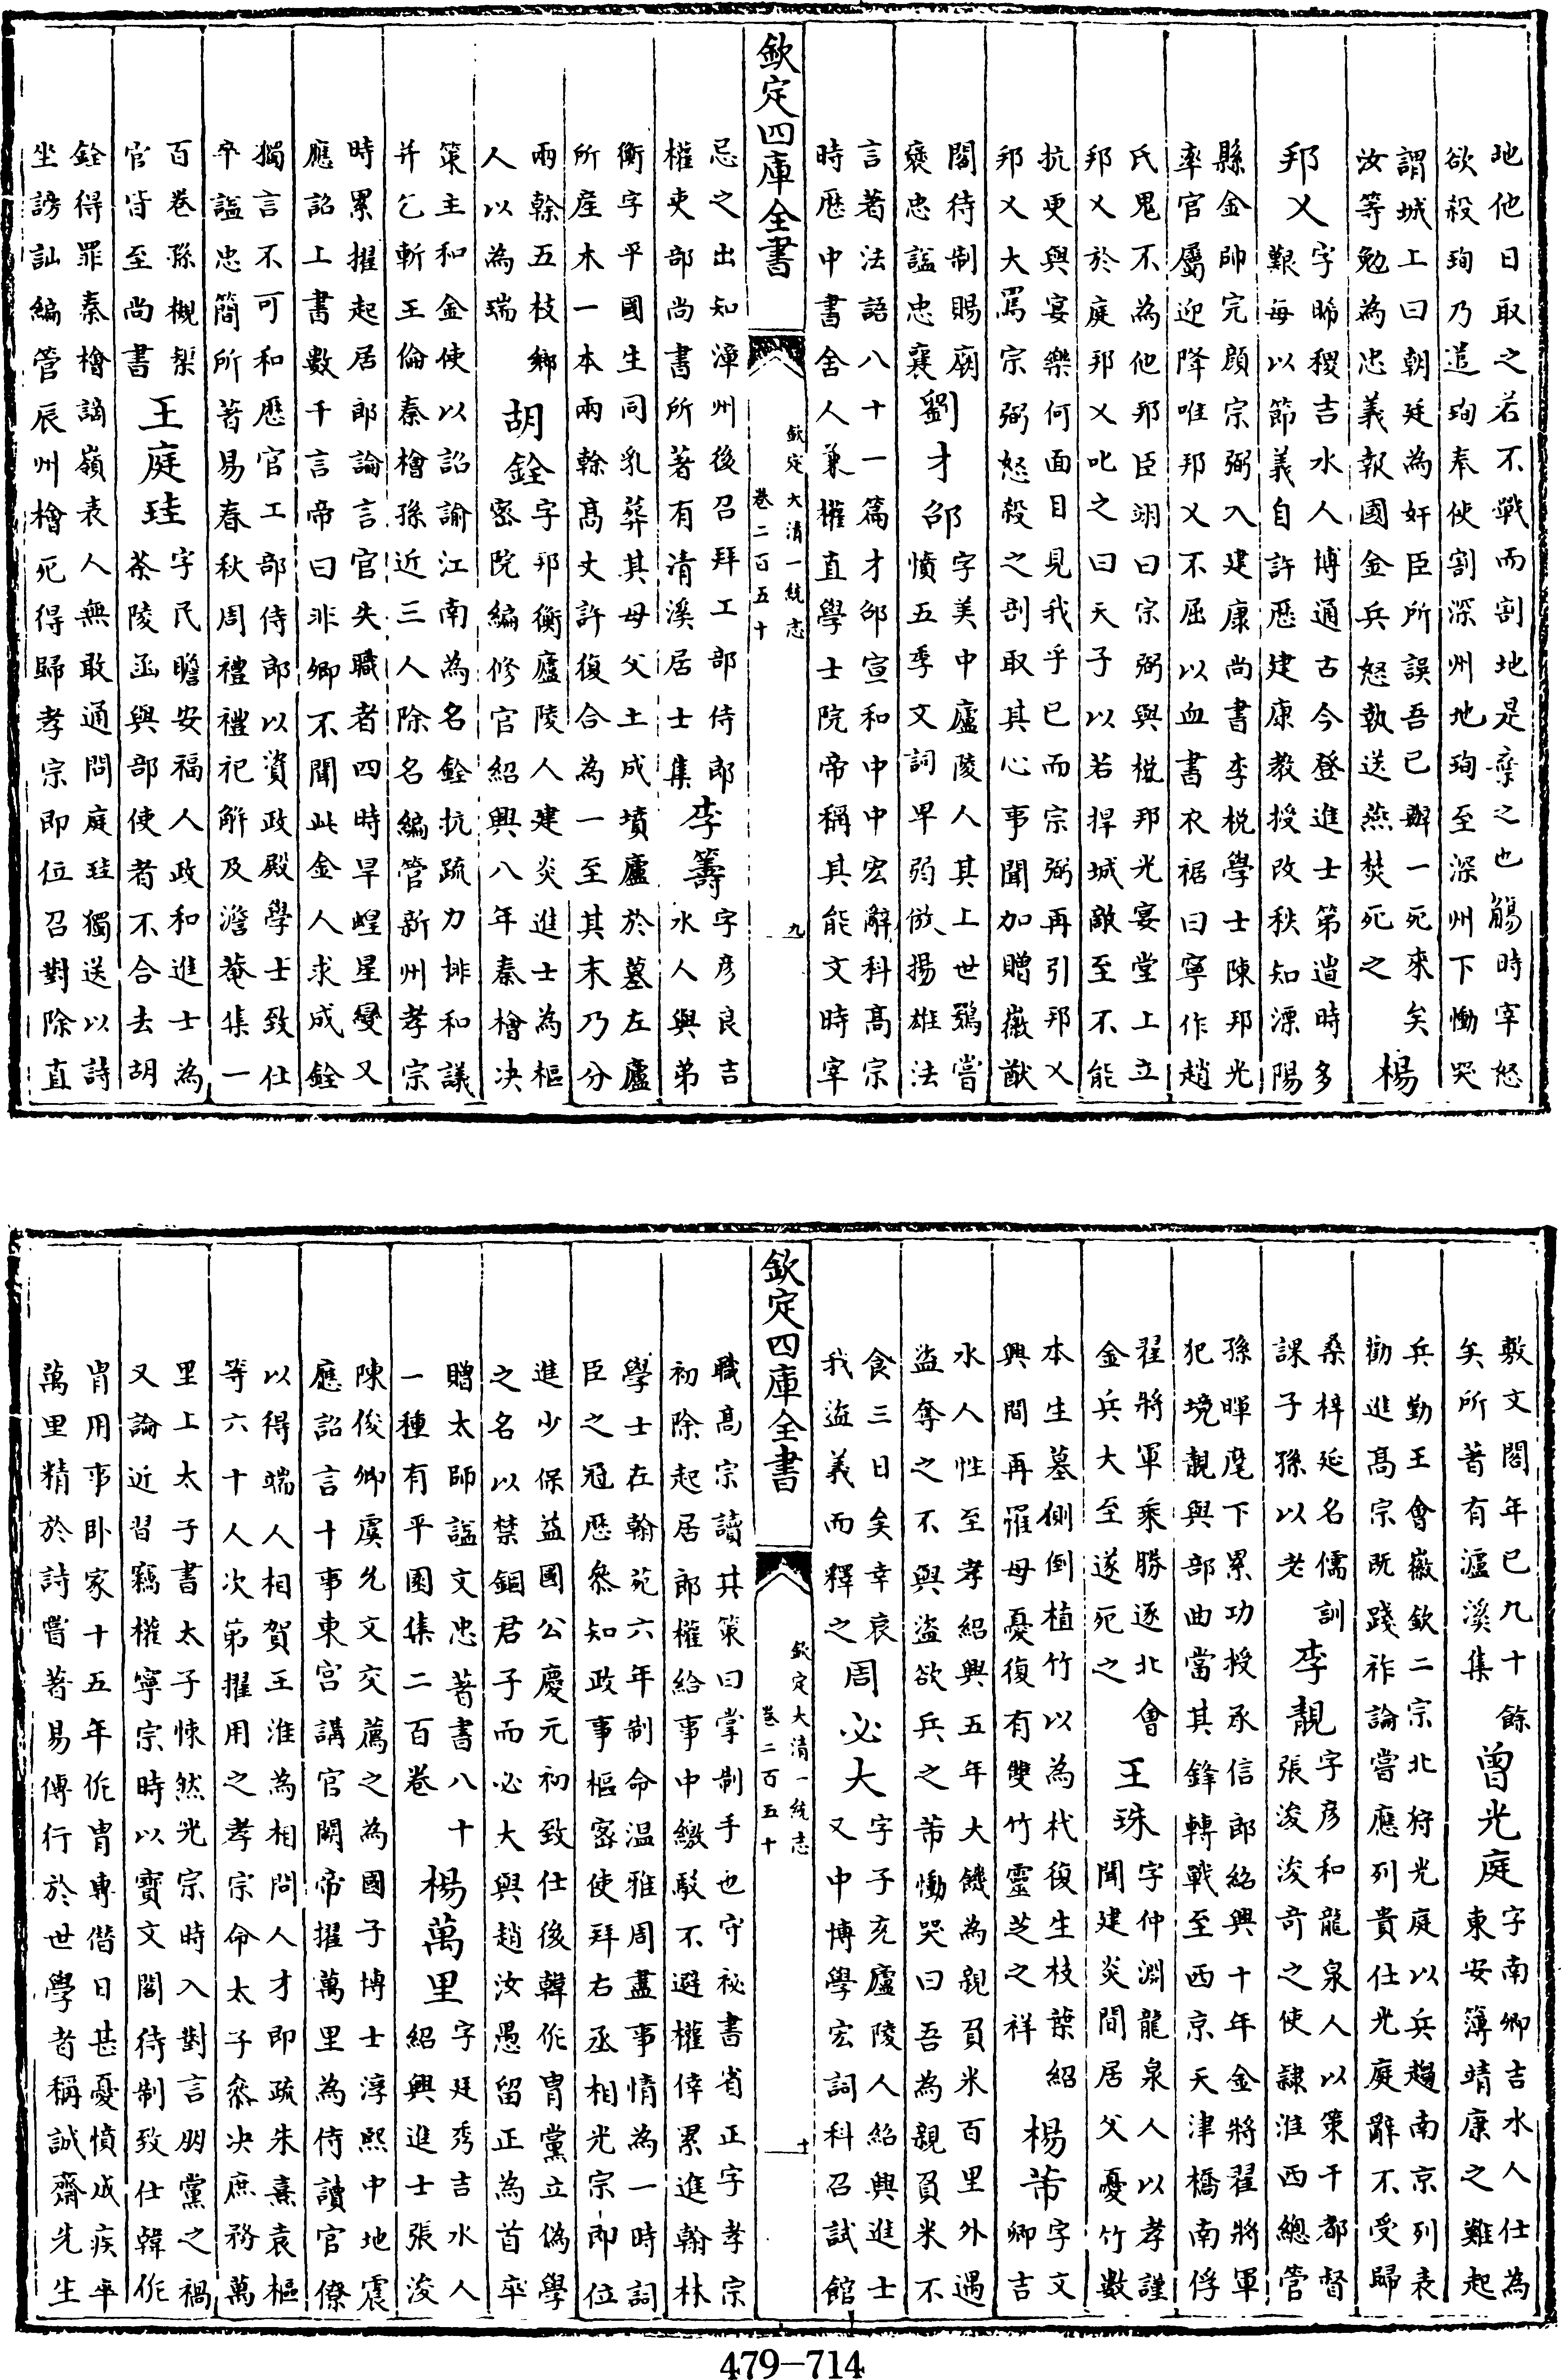 地他日取之若不戰而割地是棄之也觴時宰怒
欲殺珣乃遣珣奉使割深州地珣至深州下慟哭
謂城上曰朝廷為奸臣所誤吾已辦一死來矣
汝等勉為忠義報國金兵怒執送燕焚死之
楊
邦乂
字晞稷吉水人博通古今登進士第遭時多
艱每以節義自許歴建康教授改秩知溧陽
縣金帥完顔宗弼入建康尚書李梲學士陳邦光
率官屬迎降唯邦乂不屈以血書衣裾曰寧作趙
氏鬼不為他邦臣翊日宗弼與梲邦光宴堂上立
邦乂於庭邦乂叱之曰天子以若捍城敵至不能
抗更與宴樂何面目見我乎已而宗弼再引邦乂
邦乂大罵宗弼怒殺之剖取其心事聞加贈徽猷
閣待制賜廟
褒忠諡忠襄
劉才邵
字美中廬陵人其上世鶚嘗
憤五季文詞卑弱倣揚雄法
言著法語八十一篇才邵宣和中中宏辭科高宗
時歴中書舍人兼權直學士院帝稱其能文時宰
欽定四庫全書
欽定大清一統志
卷二百五十
九
忌之出知漳州後召拜工部侍郎
權吏部尚書所著有清溪居士集
李籌
字彦良吉
水人與弟
衡字平國生同乳葬其母父土成墳廬於墓左廬
所産木一本兩榦高丈許復合為一至其末乃分
兩榦五枝鄉
人以為瑞
胡銓
字邦衡廬陵人建炎進士為樞
密院編修官紹興八年秦檜决
策主和金使以詔諭江南為名銓抗疏力排和議
并乞斬王倫秦檜孫近三人除名編管新州孝宗
時累擢起居郎論言官失職者四時旱蝗星變又
應詔上書數千言帝曰非卿不聞此金人求成銓
獨言不可和歴官工部侍郎以資政殿學士致仕
卒諡忠簡所著易春秋周禮禮記解及澹菴集一
百卷孫槻榘
官皆至尚書
王庭珪
字民瞻安福人政和進士為
茶陵丞與部使者不合去胡
銓得罪秦檜謫嶺表人無敢通問庭珪獨送以詩
坐謗訕編管辰州檜死得歸孝宗即位召對除直
敷文閣年已九十餘
矣所著有瀘溪集
曾光庭
字南卿吉水人仕為
東安簿靖康之難起
兵勤王會徽欽二宗北狩光庭以兵趨南京列表
勸進高宗既踐祚論嘗應列貴仕光庭辭不受歸
桑梓延名儒訓
課子孫以老
李靚
字彦和龍泉人以策干都督
張浚浚奇之使隷淮西總管
孫暉麾下累功授承信郎紹興十年金將翟將軍
犯境靚與部曲當其鋒轉戰至西京天津橋南俘
翟將軍乘勝逐北會
金兵大至遂死之
王珠
字仲淵龍泉人以孝謹
聞建炎間居父憂竹數
本生墓側倒植竹以為杙復生枝葉紹
興間再罹母憂復有雙竹靈芝之祥
楊芾
字文
卿吉
水人性至孝紹興五年大饑為親負米百里外遇
盗奪之不與盗欲兵之芾慟哭曰吾為親負米不
食三日矣幸哀
我盗義而釋之
周必大
字子充廬陵人紹興進士
又中博學宏詞科召試館
欽定四庫全書
欽定大清一統志
卷二百五十
十
職高宗讀其策曰掌制手也守祕書省正字孝宗
初除起居郎權給事中繳駁不避權倖累進翰林
學士在翰苑六年制命温雅周盡事情為一時詞
臣之冠歴叅知政事樞密使拜右丞相光宗即位
進少保益國公慶元初致仕後韓侂胄黨立偽學
之名以禁錮君子而必大與趙汝愚留正為首卒
贈太師諡文忠著書八十
一種有平園集二百卷
楊萬里
字廷秀吉水人
紹興進士張浚
陳俊卿虞允文交薦之為國子博士淳熙中地震
應詔言十事東宫講官闕帝擢萬里為侍讀官僚
以得端人相賀王淮為相問人才即疏朱熹袁樞
等六十人次第擢用之孝宗命太子叅决庶務萬
里上太子書太子悚然光宗時入對言朋黨之禍
又論近習竊權寧宗時以寶文閣待制致仕韓侂
胄用事卧家十五年侂胄專僭日甚憂憤成疾卒
萬里精於詩嘗著易傳行於世學者稱誠齋先生
479—714